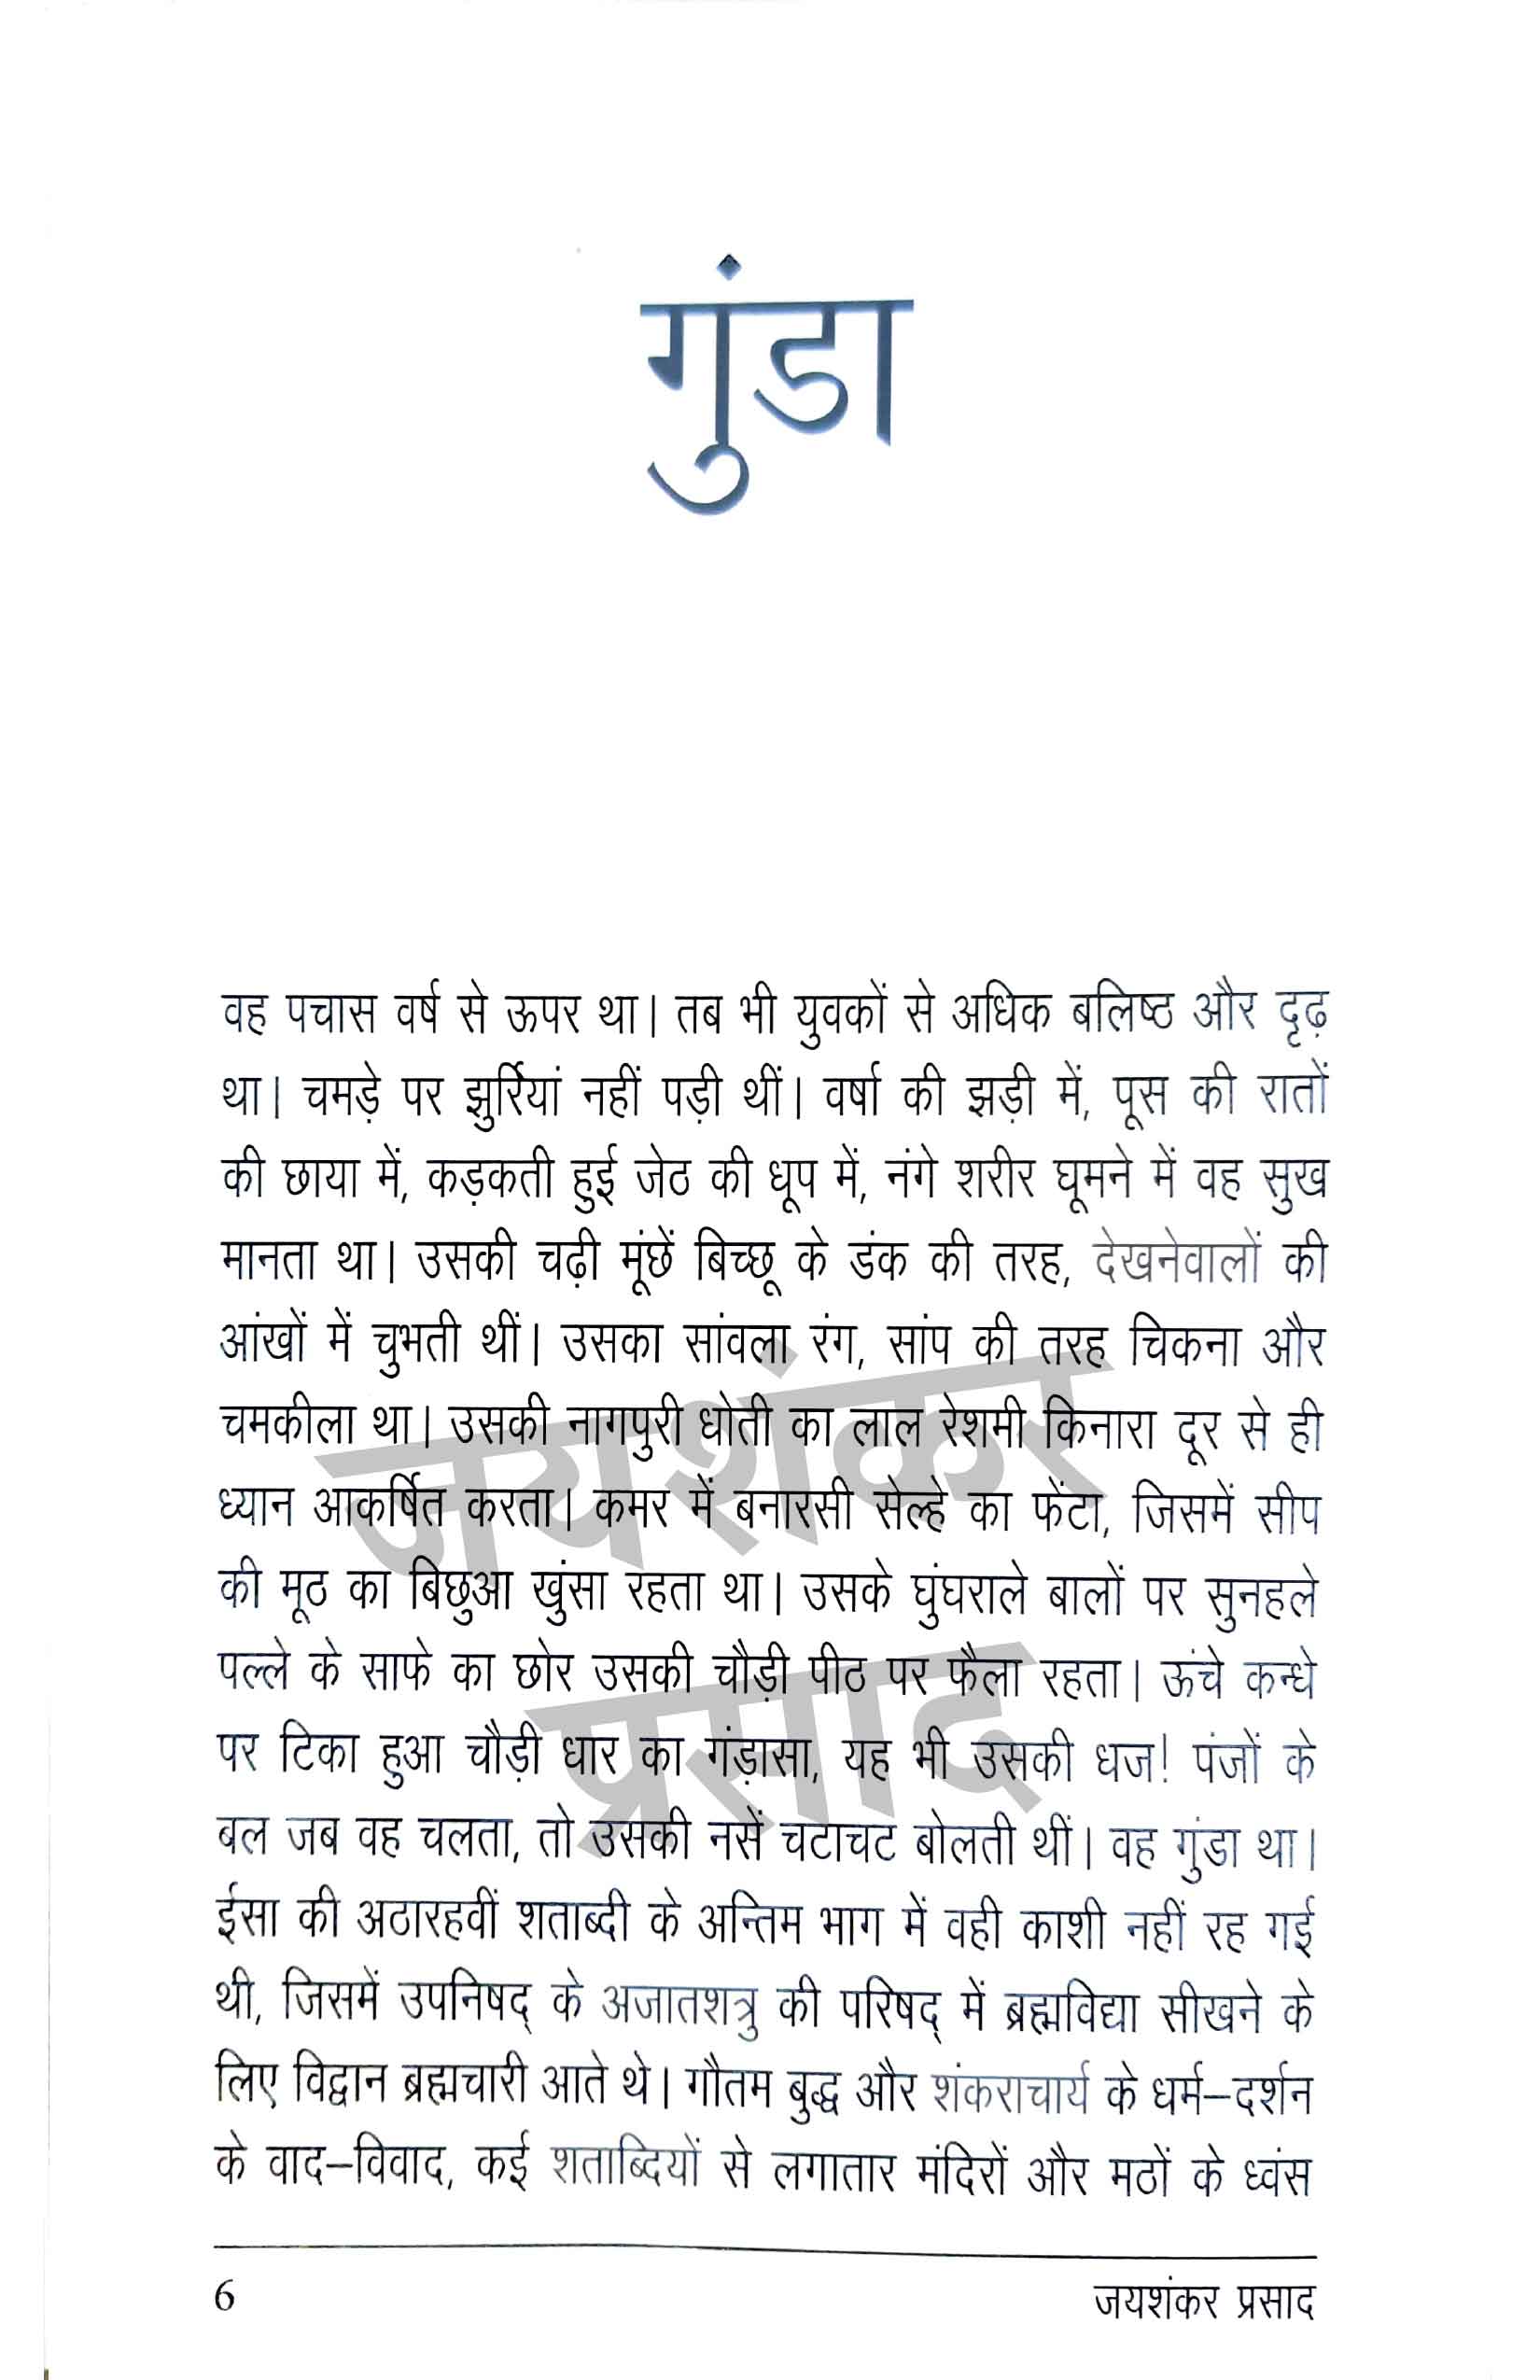 गुंडा
वह पचास वर्ष से ऊपर था। तब भी युवकों से अधिक बलिष्ठ और दृढ़
था। चमड़े पर झुर्रियां नहीं पड़ी थीं। वर्षा की झड़ी में, पूस की रातों
की छाया में, कड़कती हुई जेठ की धूप में, नंगे शरीर घूमने में वह सुख
मानता था। उसकी चढ़ी मूंछें बिच्छू के डंक की तरह, देखनेवालों की
आंखों में चुभती थीं। उसका सांवला रंग, सांप की तरह चिकना और
चमकीला था। उसकी नागपुरी धोती का लाल रेशमी किनारा दूर से ही
ध्यान आकर्षित करता। कमर में बनारसी सेल्हे का फेंटा, जिसमें सीप
की मूठ का बिछुआ खुंसा रहता था। उसके घुंघराले बालों पर सुनहले
पल्ले के साफे का छोर उसकी चौड़ी पीठ पर फैला रहता। ऊंचे कन्धे
पर टिका हुआ चौड़ी धार का गंड़ासा, यह भी उसकी धज! पंजों के
बल जब वह चलता, तो उसकी नसें चटाचट बोलती थीं। वह गुंडा था।
ईसा की अठारहवीं शताब्दी के अन्तिम भाग में वही काशी नहीं रह गई
थी, जिसमें उपनिषद् के अजातशत्रु की परिषद् में ब्रह्मविद्या सीखने के
लिए विद्वान ब्रह्मचारी आते थे। गौतम बुद्ध और शंकराचार्य के धर्म–दर्शन
के वाद–विवाद, कई शताब्दियों से लगातार मंदिरों और मठों के ध्वंस
जयशंकर
प्रसाद
6
जयशंकर प्रसाद